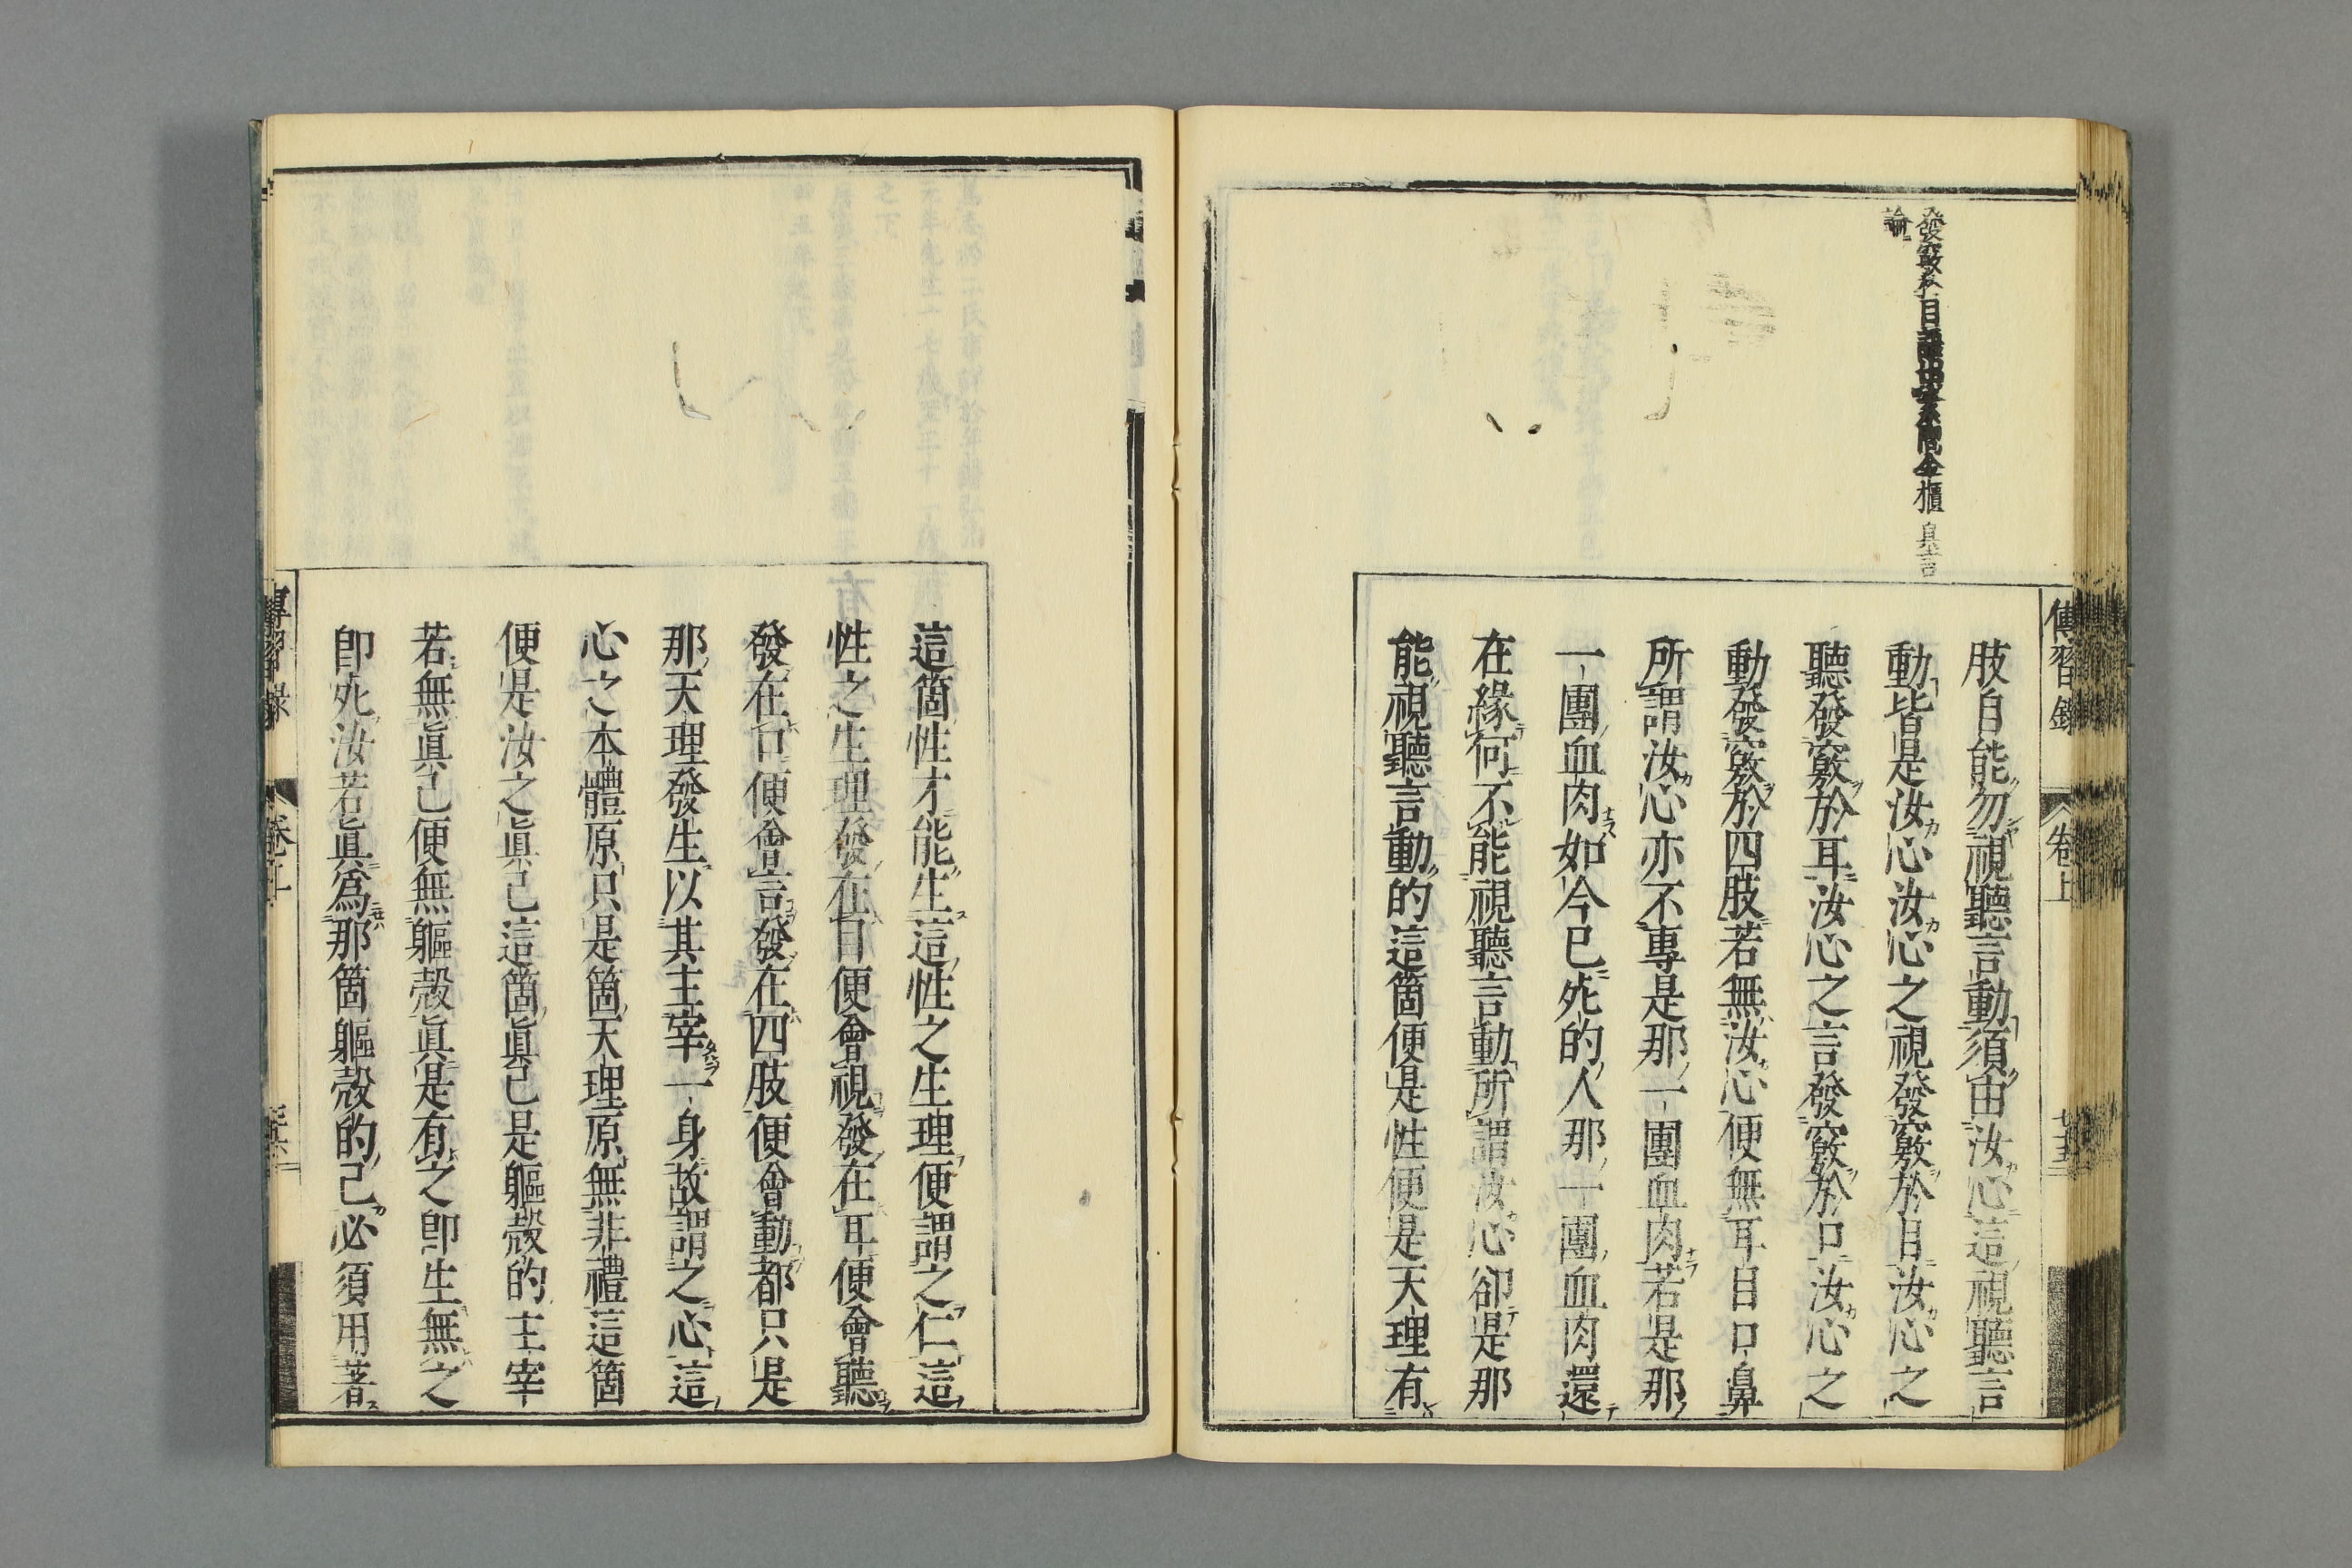 傳習錄 卷上 廿五
肢自能勿視聽言動須由汝心這視聽言
動皆是汝心汝心之視發竅於目汝心之
聽發竅於耳汝心之言發竅於口汝心之
動發竅於四肢若無汝心便無耳目口鼻
所謂汝心亦不專是那一團血肉若是那
一團血肉如今已死的人那一團血肉還
在緣何不能視聽言動所謂汝心卻是那
能視聽言動的這箇便是性便是天理有
這箇性才能生這性之生理便謂之仁這
性之生理發在目便會視發在耳便會聽
發在口便會言發在四肢便會動都只是
那天理發生以其主宰一身故謂之心這
心之本體原只是箇天理原無非禮這箇
便是汝之眞己這箇眞己是軀殼的主宰
若無眞己便無軀殼眞是有之卽生無之
卽死汝若眞爲那箇軀殼的己必須用著